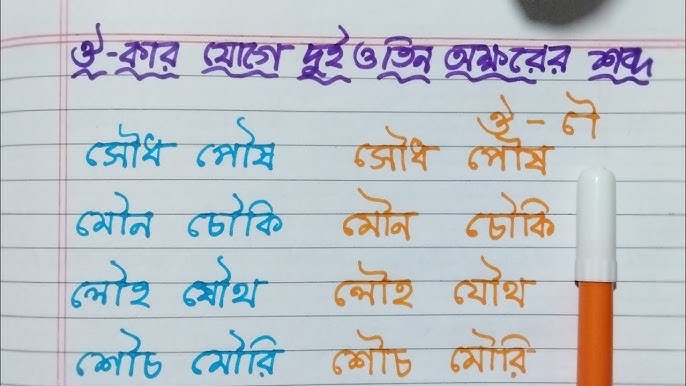 ঔ-কার যোগে দুই ও তিন অক্ষরের শব্দ
ঔ - ৌ
সৌধ পৌষ সৌধ পৌষ
মৌন চৌকি মৌন চৌকি
লৌহ যৌথ লৌহ যৌথ
শৌচ মৌরি শৌচ মৌরি